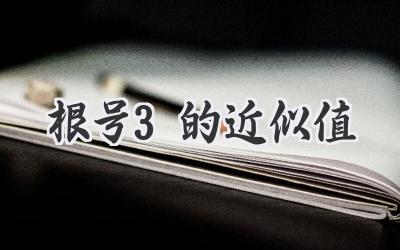 根号3 的近似值